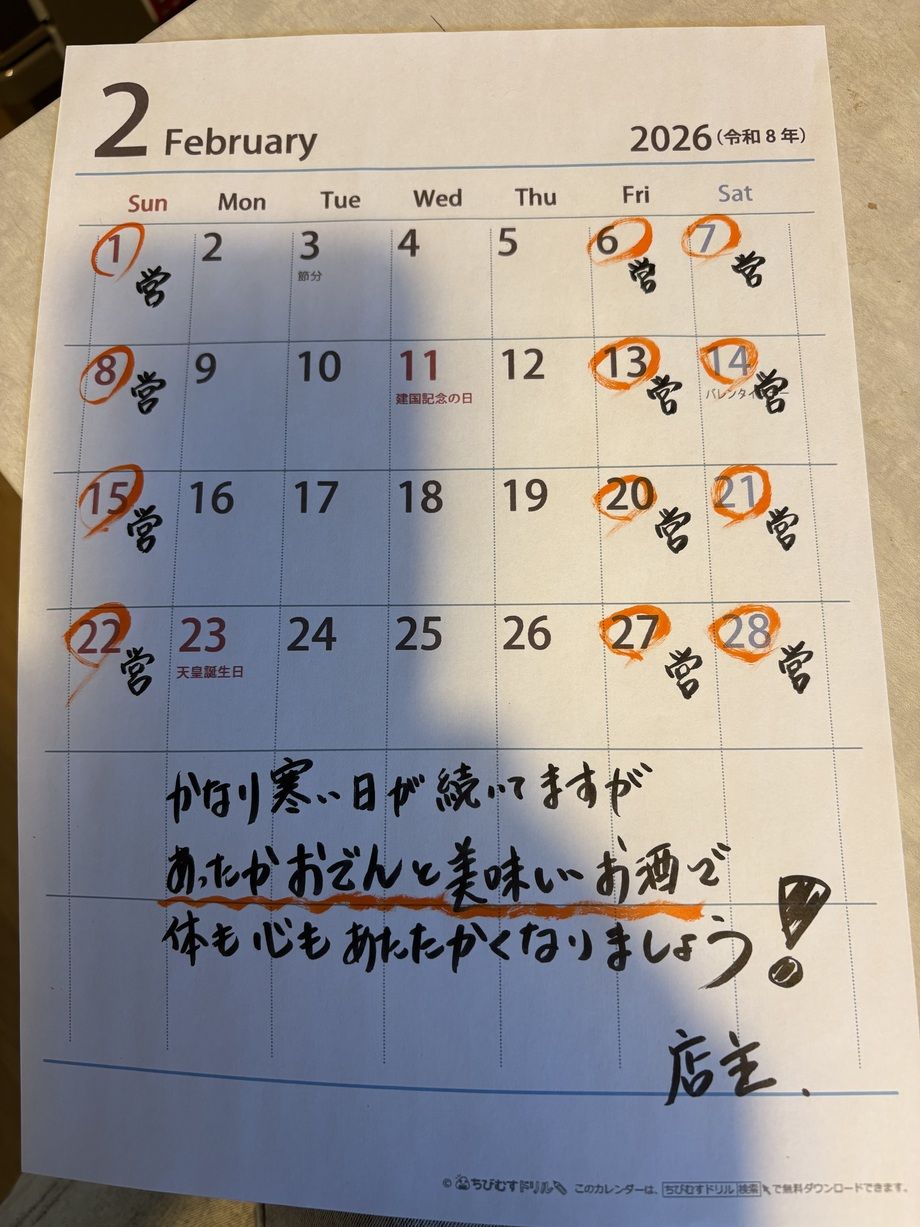 2 February 2026(令和8年)
Sun Mon Tue Wed Thu Fri Sat
1 2 3 4 5 6 7
営 節分 営 営
8 9 10 11 12 13 14
営 建国記念の日 営 バレンタインデー 営
15 16 17 18 19 20 21
営 営 営
22 23 24 25 26 27 28
営 天皇誕生日 営 営
かなり寒い日が続いてますが
あったかおでんと美味しいお酒で
体も心もあたたかくなりましょう!
店主.
© ちびむすドリル このカレンダーは、ちびむすドリル 検索 で無料ダウンロードできます。